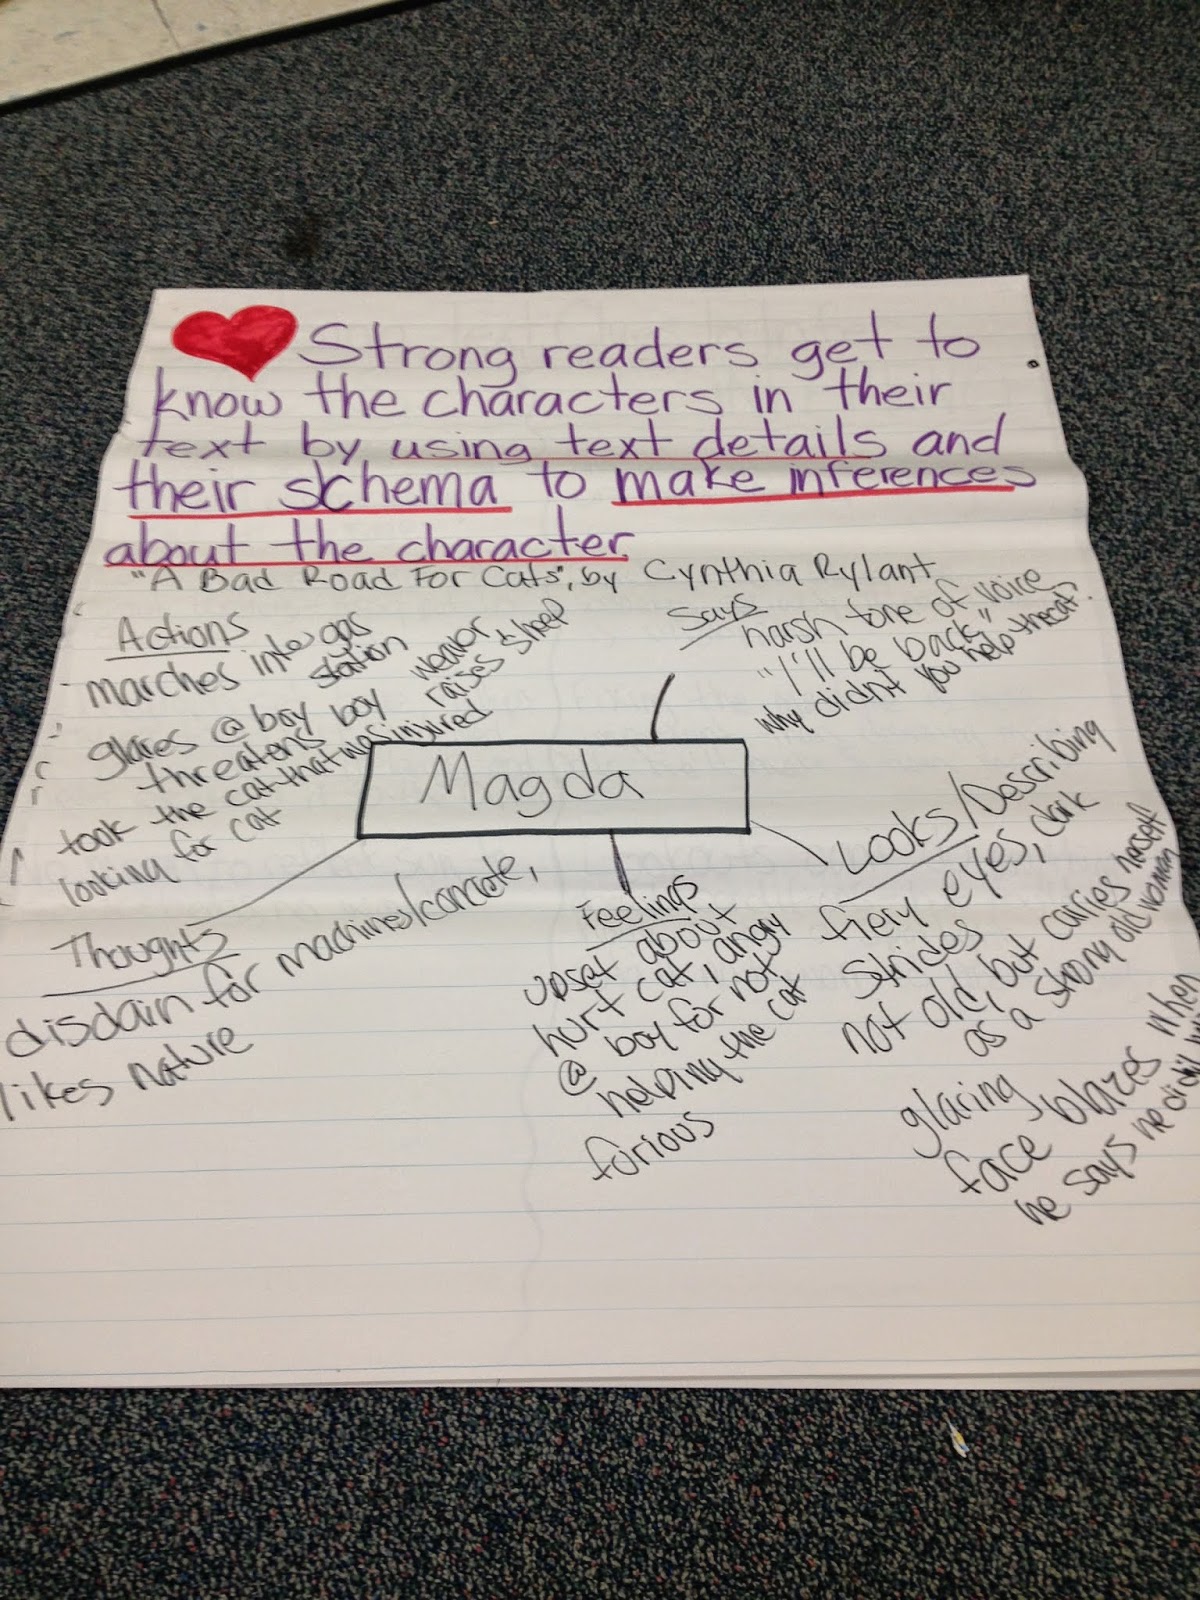 Strong readers get to
know the characters in their
text by using text details and
their schema to make inferences
about the character
"A Bad Road For Cats", by Cynthia Rylant
Actions
marches into gas
station
glares @ boy
threatens boy
weaver
raises sheep
took the cat that was injured
looking for cat
Says
harsh tone of voice
"I'll be back"
why didn't you help the cat?
Magda
Thoughts
disdain for machines/concrete,
likes nature
Feelings
upset about
hurt cat, angry
@ boy for not
helping the cat
furious
Looks/Describing
fiery eyes, dark
strides
not old, but carries herself
as a strong old woman
glaring
face blazes when
he says he didn't